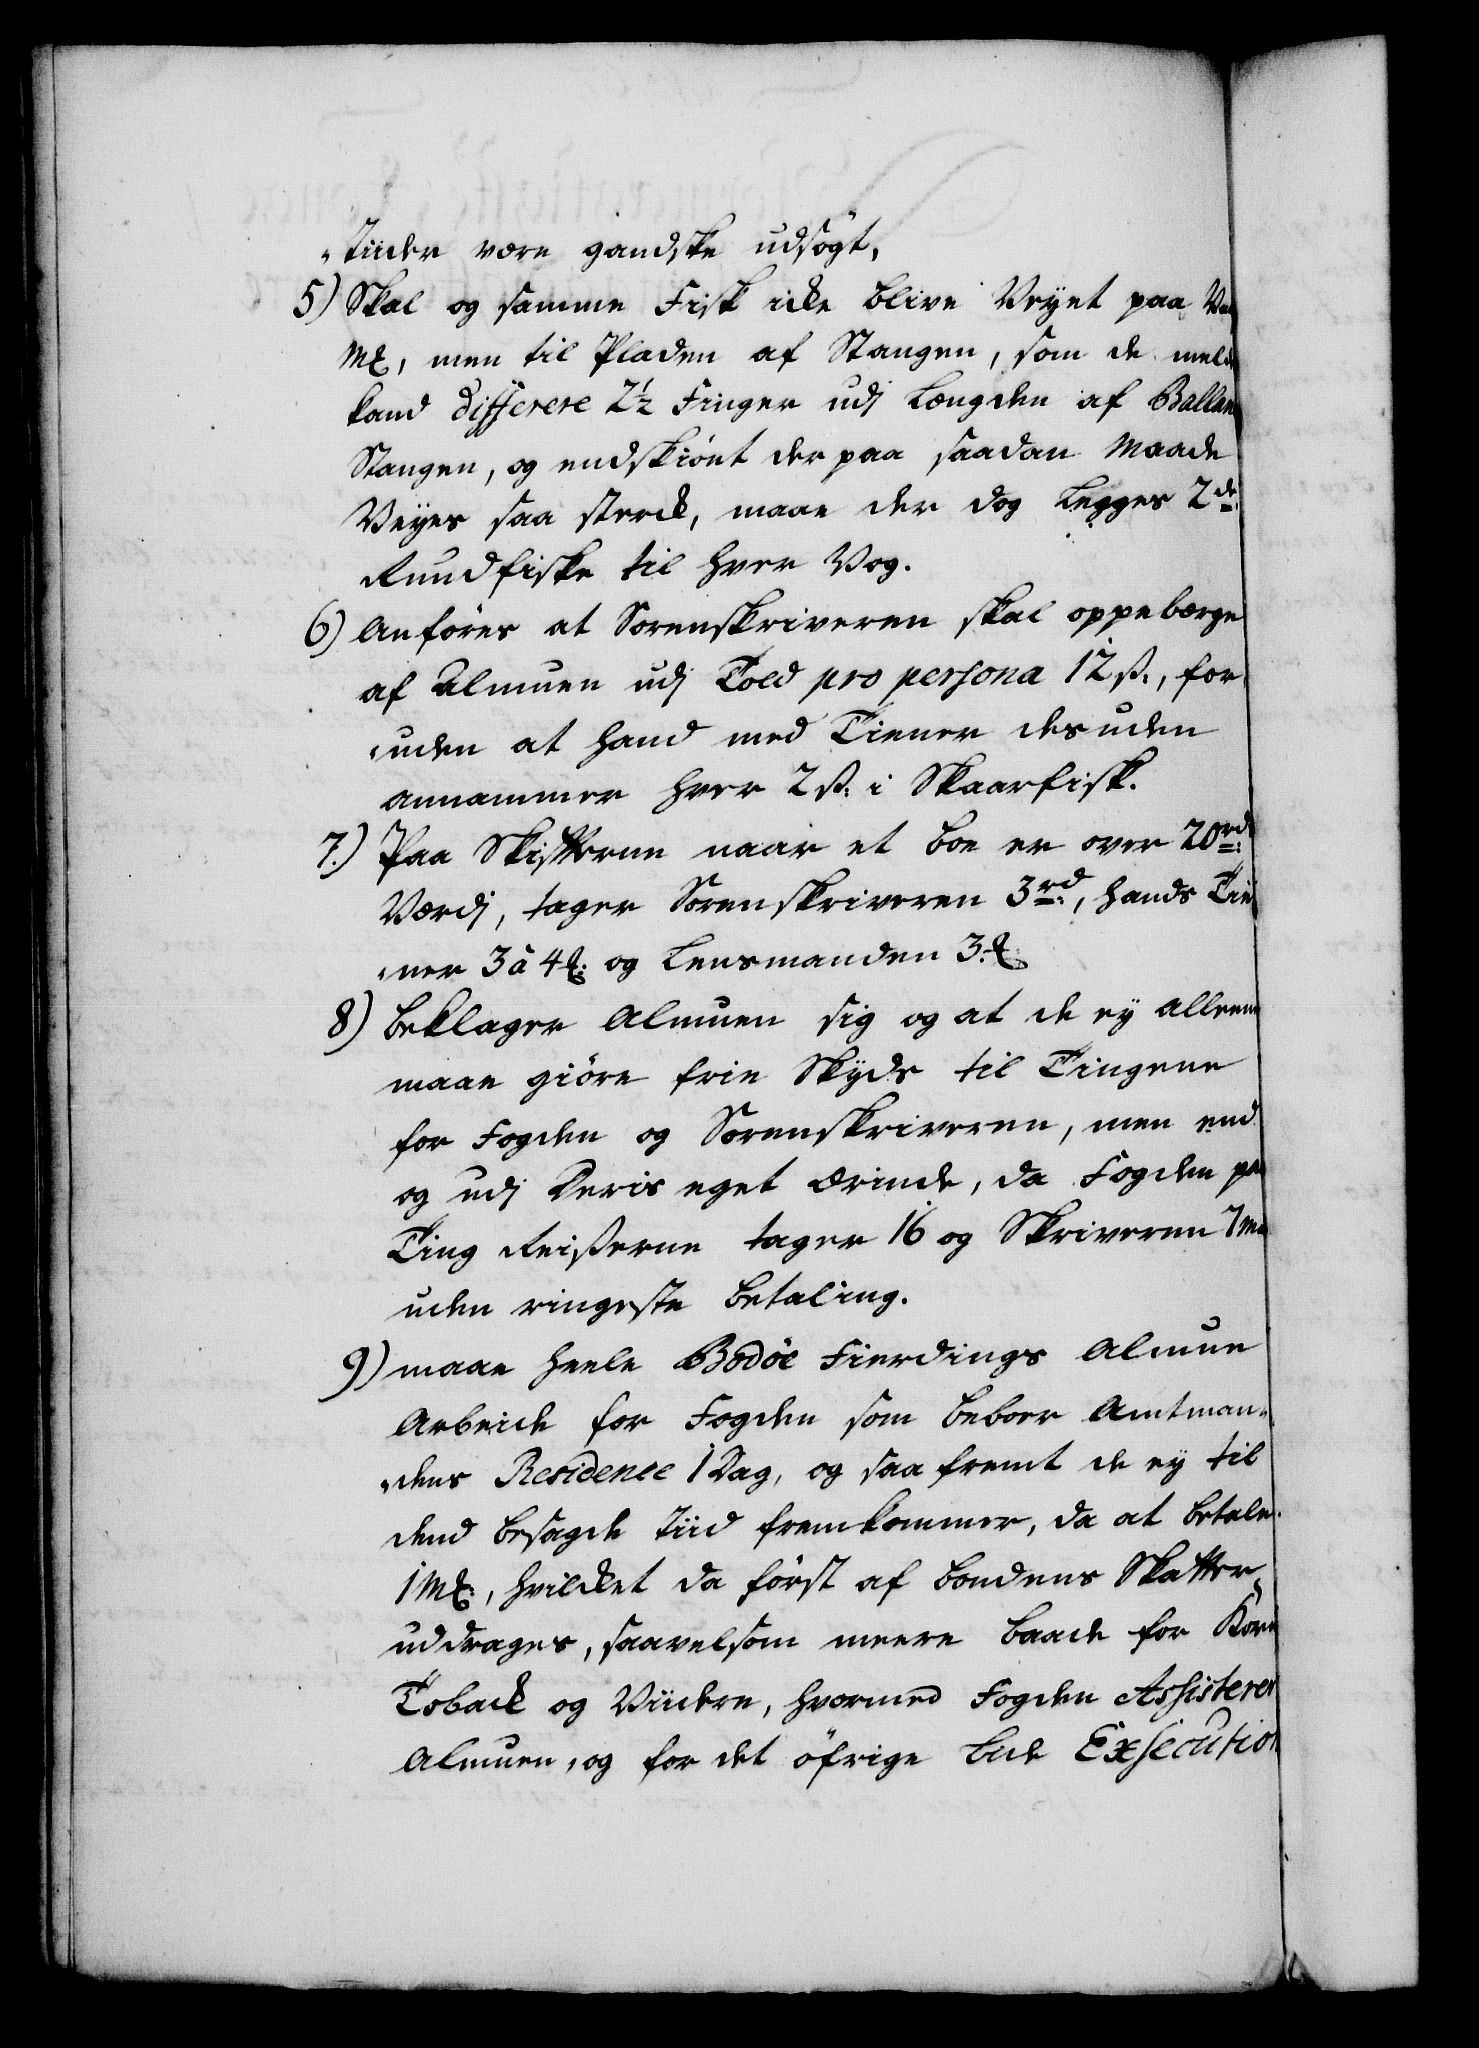 „Tiider være gandske udsøgt,
5) Skal og samme Fisk icke blive Veyet paa
Mk, men til Pladen af Stangen, som de meld
kand differere 2½ Finger udj Længden af Ballan
Stangen, og endskiönt der paa saadan Maade
Veyes saa sterck, maae der dog Legges 2de
Rundfiske til hver Vog.
6) Anföres at Sorenskriveren skal oppebærge
af Almuen udj Told pro persona 12 ß., for
„uden at hand med Tiener desuden
annammer hver 2 ß. i Skaarfisk.
7.) Paa Skifterne naar et Boe er over 20 rd:
Værdj, tager Sorenskriveren 3 rd:, hands Tie
„ner 3 à 4 Mk: og Lensmanden 3. Mk
8) Beklager Almuen sig og at de ey alleene
maae giöre frie Skyds til Tingene
for Fogden og Sorenskriveren, men end
og udj Deris eget Ærinde, da Fogden paa
Ting Reiserne tager 16 og Skriveren 7
uden ringeste Betaling.
9) maae heele Bodöe Fierdings Almue
Arbeide for Fogden som beboer Amtman„
„dens Residence 1 Dag, og saafremt de ey til
dend besagde Tiid fremkommer, da at betale
1 Mk:, hvilcket da först af Bondens Skatter
uddrages, saavelsom meere baade for Korn
Toback og Viidere, hvormed Fogden Assisterer
Almuen, og for det öfrige Lide Exsecution